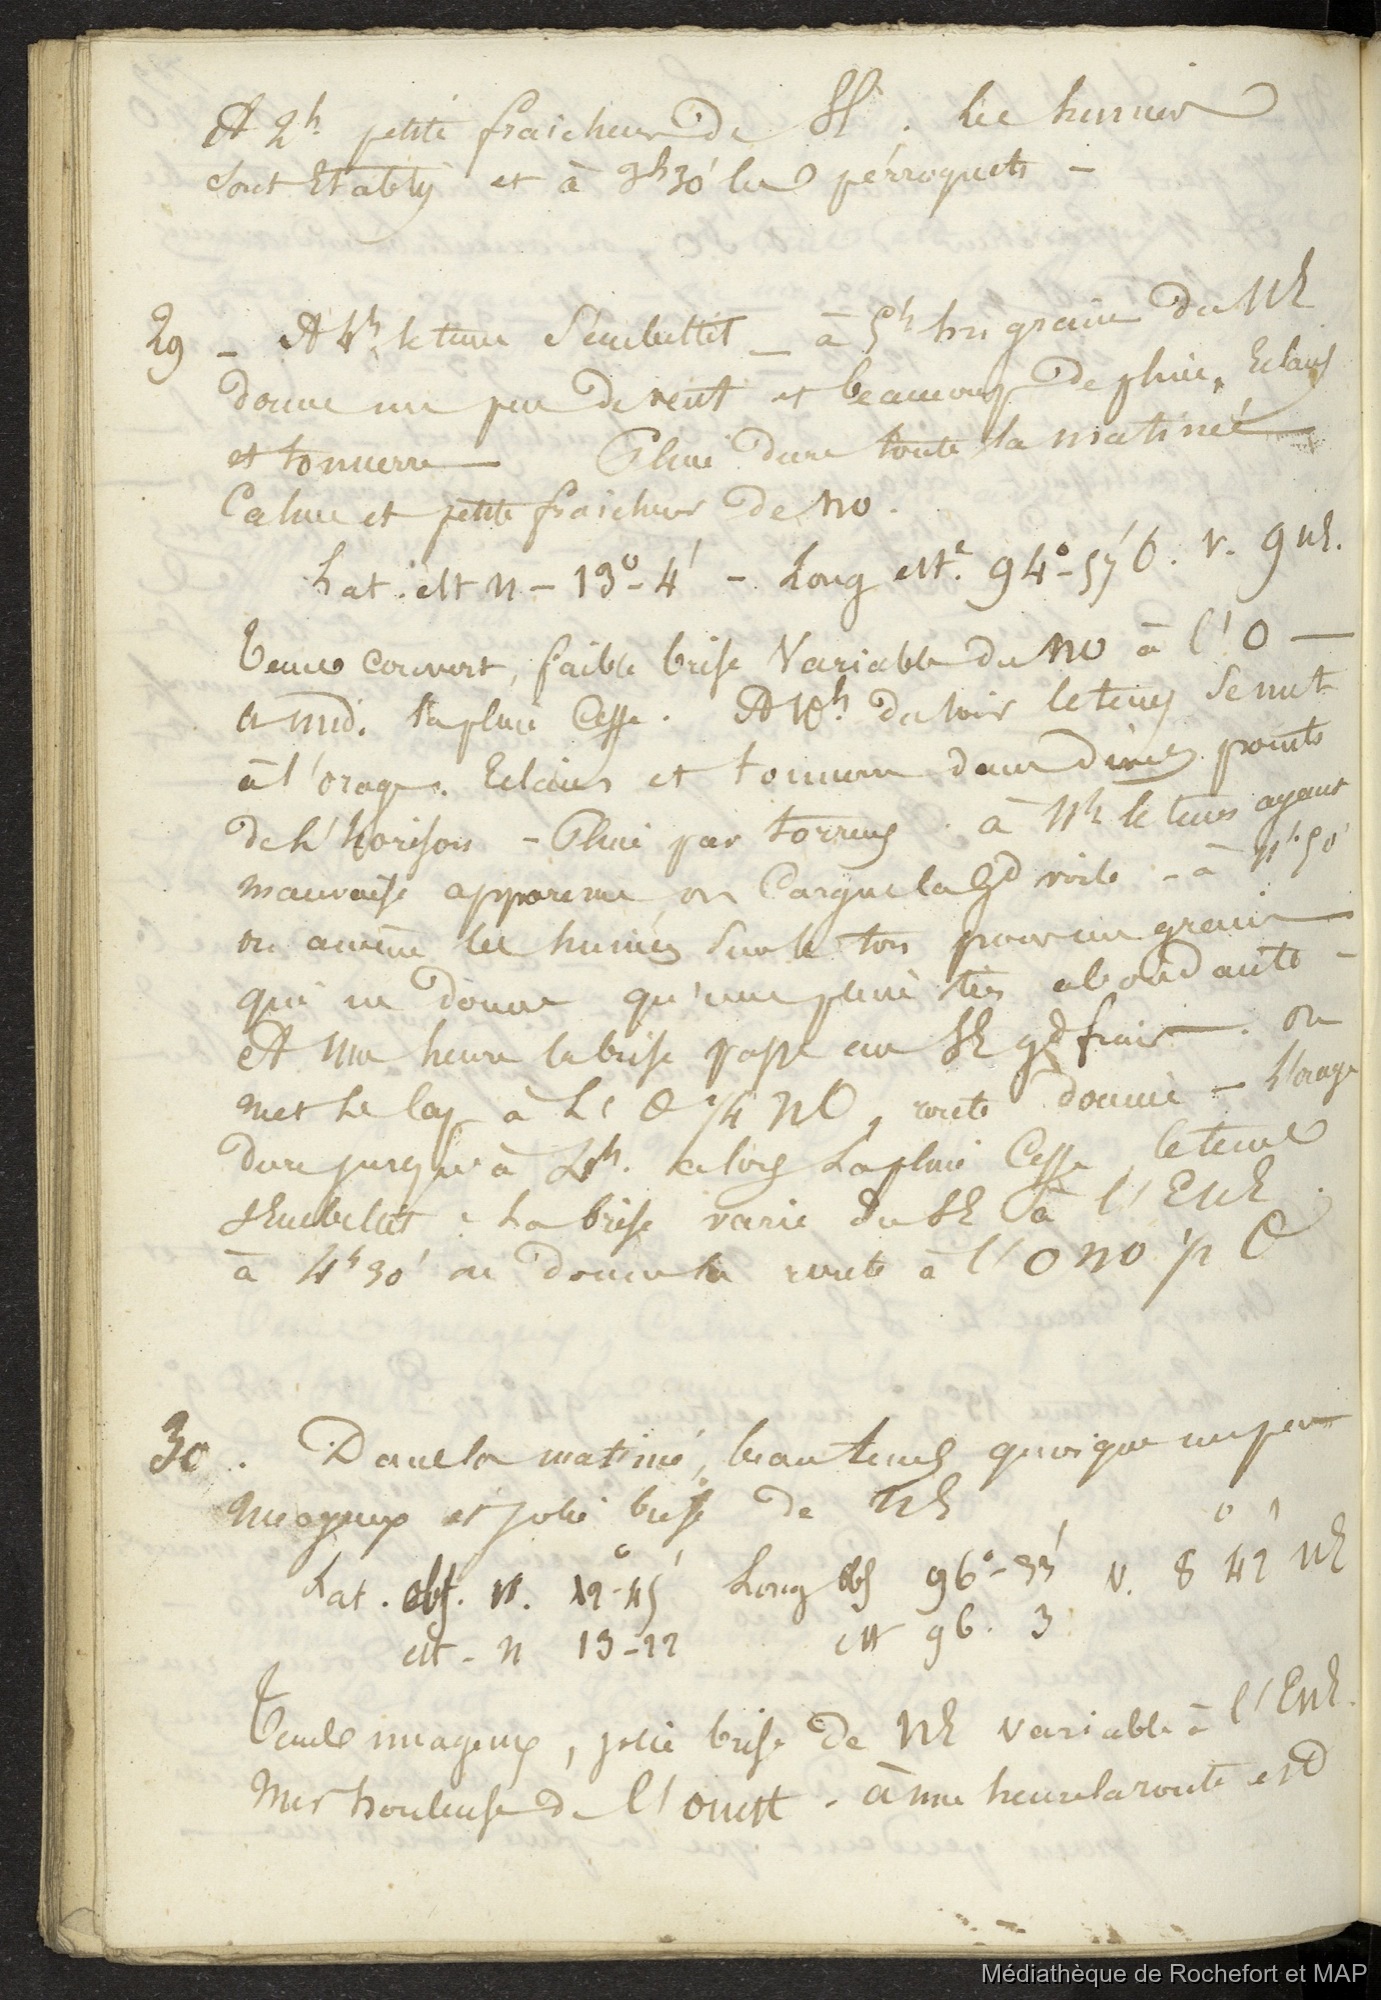 A 2h petite fraicheur de SE. Les huniers
sont Etablis et à 3h30' les perroquets -
29 - A 4h le tems s'embellit - à 5h un grain du NE
donne un peu de vent et beaucoup de pluie, Eclairs
et tonnerre - Pluie dure toute la matinée
Calme et petite fraicheur de NO.
Lat. est N - 13° - 4' - Long est.e 94° - 57' O. V. 9 NE.
Tems couvert, faible brise Variable du NO à l'O -
a midi la pluie Cesse. A 10h du soir le tems se met
à l'orage. Eclairs et tonnerre dans divers points
de l'horison - Pluie par torrens. à 11h le tems ayant
mauvaise apparence on Cargue la Gd voile - à 11h.50'
on amène les huniers sur le ton pour un grain
qui ne donne qu'une pluie très abondante -
A une heure la brise passe au SE gd frais. on
met le Cap à l'O 1/4 NO, route donnée - L'orage
dure jusqu'à 2h. alors la pluie Cesse, le tems
s'embellit. La brise varie du SE à l'ENE.
à 4h30' on donne la route à l'ONO 1/2 O
30. Dans la matiné, beau tems quoique un peu
nuageux et jolie brise de NE
Lat. obs. N. 12° - 45' Long obs 96° - 33' V. 8° 42' NE
est - N 13 - 22 est 96. 3
Tems nuageux, jolie brise de NE variable à l'ENE.
Mer houleuse de l'ouest - à une heure la route est
Médiathèque de Rochefort et MAP